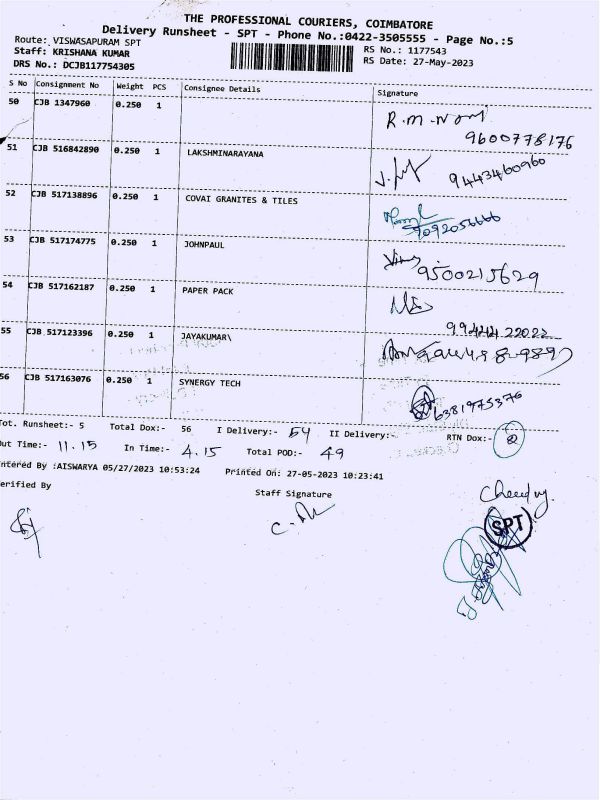 THE PROFESSIONAL COURIERS, COIMBATORE
Delivery Runsheet - SPT - Phone No.:0422-3505555 - Page No.:5
Route: VISWASAPURAM SPT RS No.: 1177543
Staff: KRISHANA KUMAR RS Date: 27-May-2023
DRS No.: DCJB117754305
S No Consignment No Weight PCS Consignee Details Signature
50 CJB 1347960 0.250 1 R.M.
9600778176
51 CJB 516842890 0.250 1 LAKSHMINARAYANA
9443460960
52 CJB 517138896 0.250 1 COVAI GRANITES & TILES
9092056666
53 CJB 517174775 0.250 1 JOHNPAUL
9500215629
54 CJB 517162187 0.250 1 PAPER PACK
99444 22022
55 CJB 517123396 0.250 1 JAYAKUMAR\
56 CJB 517163076 0.250 1 SYNERGY TECH
6381975376
Tot. Runsheet:- 5 Total Dox:- 56 I Delivery:- 54 II Delivery:- RTN Dox:- 2
Out Time:- 11.15 In Time:- 4.15 Total POD:- 49
Entered By :AISWARYA 05/27/2023 10:53:24 Printed On: 27-05-2023 10:23:41
Verified By Staff Signature
SPT